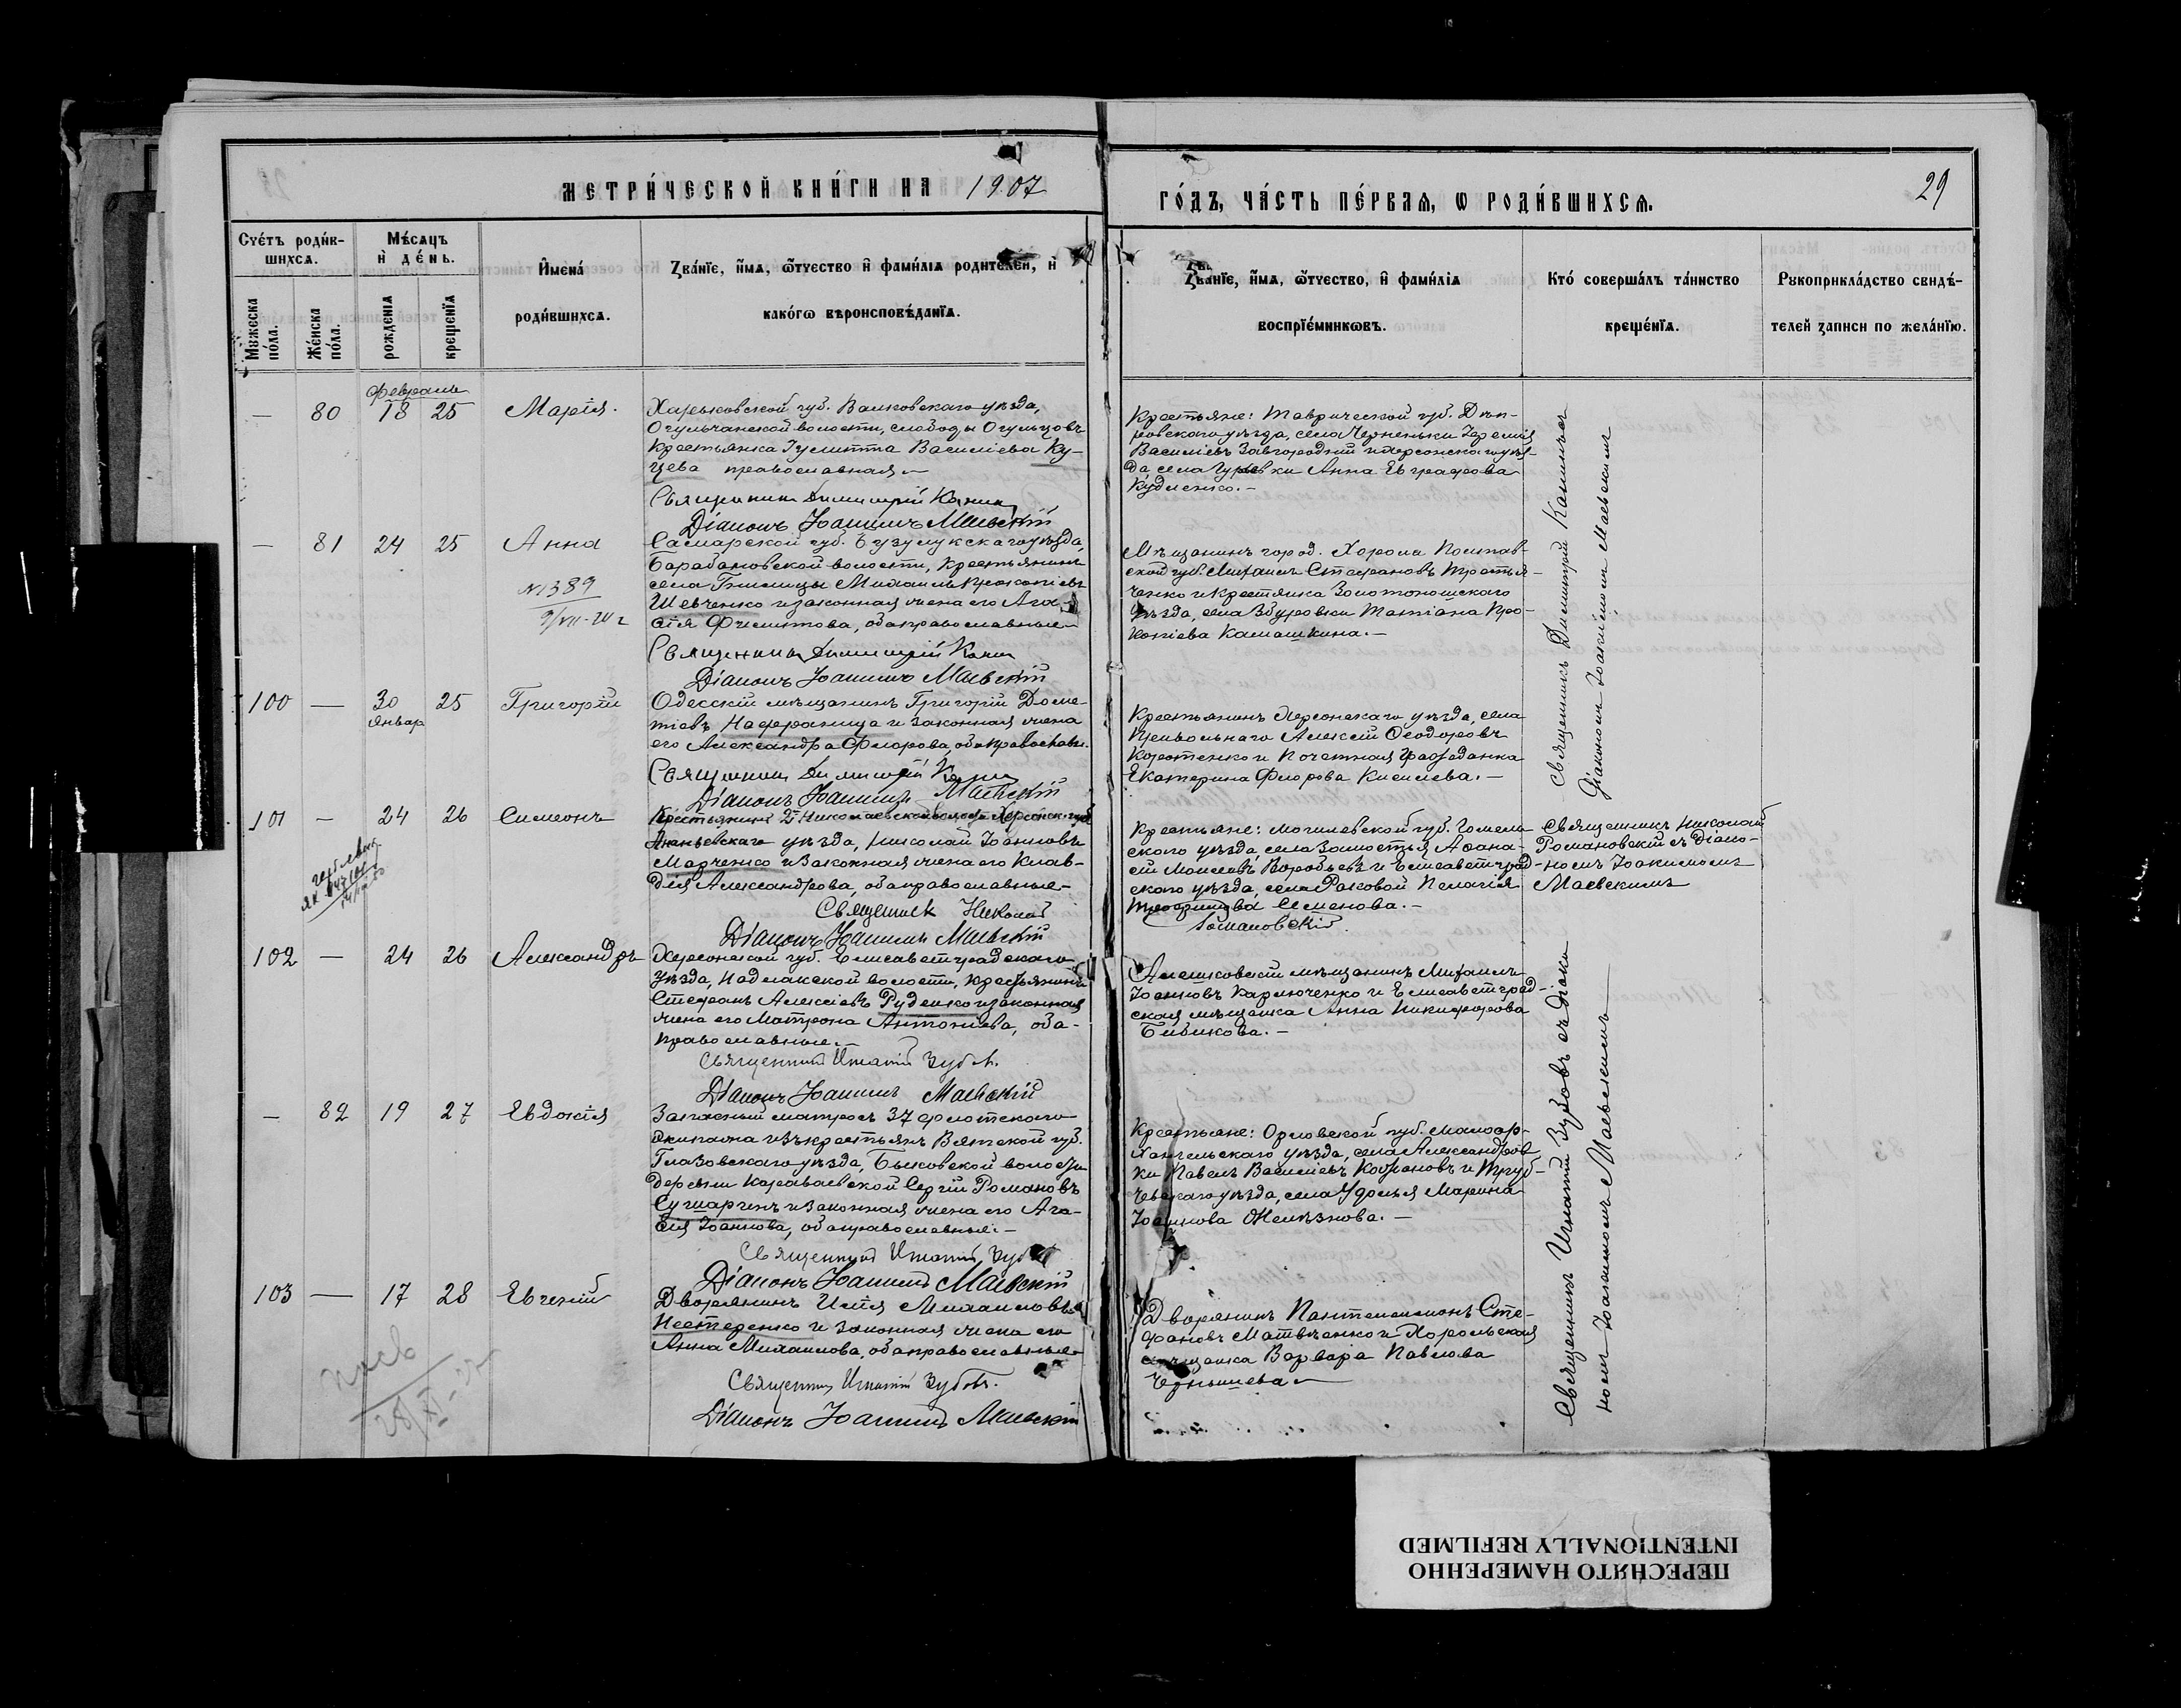 МЕТРИ́ЧЕСКОЙ КНИ́ГИ НА 1907 ГО́ДЪ, ЧА́СТЬ ПЕ́РВАЯ, Ѡ РОДИ́ВШИХСЯ.
29
Сче́тъ роди́в-
шихсѧ.
Мꙋжеска по́ла.
Же́нска по́ла.
Мѣ́сѧцъ
и҆ де́нь.
рожденїѧ
крещенїѧ
И҆мена́
роди́вшихсѧ.
Зва́нїе, и҆́мѧ, ѻ҆́тчество и҆ фами́лїѧ роди́телей, и҆
како́гѡ вѣроисповѣ́данїѧ.
Зва́нїе, и҆́мѧ, ѻ҆́тчество, и҆ фами́лїѧ
воспрїе́мникѡвъ.
Кто́ соверша́лъ та́инство
креще́нїѧ.
Рꙋкоприкла́дство свидѣ́-
телей записи по жела́нїю.
Февраль
— 80 18 25 Марія.
Харьковской губ. Валковскаго уѣзда,
Огульчанской волости, слободы Огульцовъ
крестьянка Іулитта Василіева Ку-
цева православная
Священникъ Димитрій
Діаконъ Іоакимъ Маевскій
Крестьяне: Таврической губ. Днѣп-
ровскаго уѣзда, села Черненьки Іеремія
Василіевъ Завгородній и Херсонскаго уѣз-
да села Гурьевки Анна Евграфова
Кудленко. —
— 81 24 25 Анна
№1389
Самарской губ. Бузулукскаго уѣзда,
Барабановской волости, крестьянинъ
села Михаилъ Прокопіевъ
Шевченко и законная жена его Ага-
ѳія Филиппова, оба православные
Священникъ Димитрій
Діаконъ Іоакимъ Маевскій
Мѣщанинъ город. Хорола Полтав-
ской губ. Михаилъ Стефановъ Третья-
ченко и крестьянка Золотоношскаго
уѣзда, села Збуровки Татіана Про-
копіева Камашкина. —
Священникъ Димитрій
Діакономъ Іоакимомъ Маевскимъ
100 — 30 25 Григорій
Январ
Одесскій мѣщанинъ Григорій Доме-
тіевъ Нафераница и законная жена
его Александра Флорова, оба православн.
Священникъ Димитрій
Діаконъ Іоакимъ Маевскій
Крестьянинъ Херсонскаго уѣзда, села
Привольнаго Алексій Ѳеодоровъ
Коротенко и Почетная гражданка
Екатерина Флорова Киселева. —
101 — 24 26 Симеонъ
Крестьянинъ Николаевской волости Херсонск. губ.
Ананьевскаго уѣзда, Николай Іоанновъ
Марченко и законная жена его Клав-
дія Александрова, оба православные —
Священникъ Николай
Романовскій
Діаконъ Іоакимъ Маевскій
Крестьяне: Могилевской губ. Гомель-
скаго уѣзда, села Замостья Аѳана-
сій Моисеевъ Воробьевъ и Елисаветград-
скаго уѣзда, села Расковой Пелагія
Трофимова Семенова. —
Священникъ Николай
Романовскій съ Діако-
номъ Іоакимомъ
Маевскимъ
102 — 24 26 Александръ
Херсонской губ. Елисаветградскаго
уѣзда, Надлакской волости, крестьянинъ
Стефанъ Алексіевъ Руденко и законная
жена его Матрона Антоніева, оба-
православные. —
Священникъ Игнатій Зубовъ.
Діаконъ Іоакимъ Маевскій
Алешковскій мѣщанинъ Михаилъ
Іоанновъ Карлюченко и Елисаветград-
ская мѣщанка Анна Никифорова
Бибикова. —
— 82 19 27 Евдокія
Запасный матросъ 37 флотскаго
экипажа изъ крестьянъ Вятской губ.
Глазовскаго уѣзда, волости
деревни Караваевской Сергій Романовъ
и законная жена его Ага-
ѳія Іоаннова, оба православные. —
Священникъ Игнатій Зубовъ
Діаконъ Іоакимъ Маевскій
Крестьяне: Орловской губ. Малоар-
хангельскаго уѣзда, села Александров-
ки Павелъ Василіевъ и Труб-
чевскаго уѣзда, села Удолья Марина
Іоаннова Желѣзнова. —
Священникъ Игнатій Зубовъ съ Діако-
номъ Іоакимомъ Маевскимъ
103 — 17 28 Евгеній
Дворянинъ Илія Михаиловъ
Нестеренко и законная жена его
Анна Михаилова, оба православные
Священникъ Игнатій Зубовъ.
Діаконъ Іоакимъ Маевскій
Дворянинъ Пантелеимонъ Сте-
фановъ Матвѣенко и Хорольская
мѣщанка Варвара Павлова
Чернышева
ПЕРЕСНЯТО НАМЕРЕННО
INTENTIONALLY REFILMED